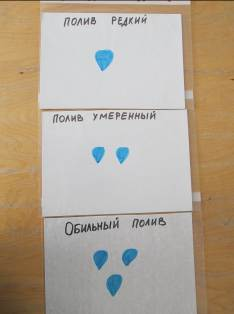 ПОЛИВ РЕДКИЙ
ПОЛИВ УМЕРЕННЫЙ
ОБИЛЬНЫЙ ПОЛИВ